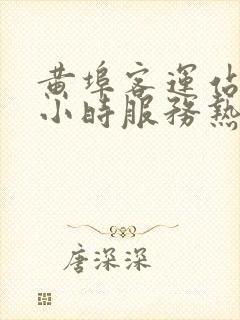 黄埠客運佔
小時服務熱
唐深深